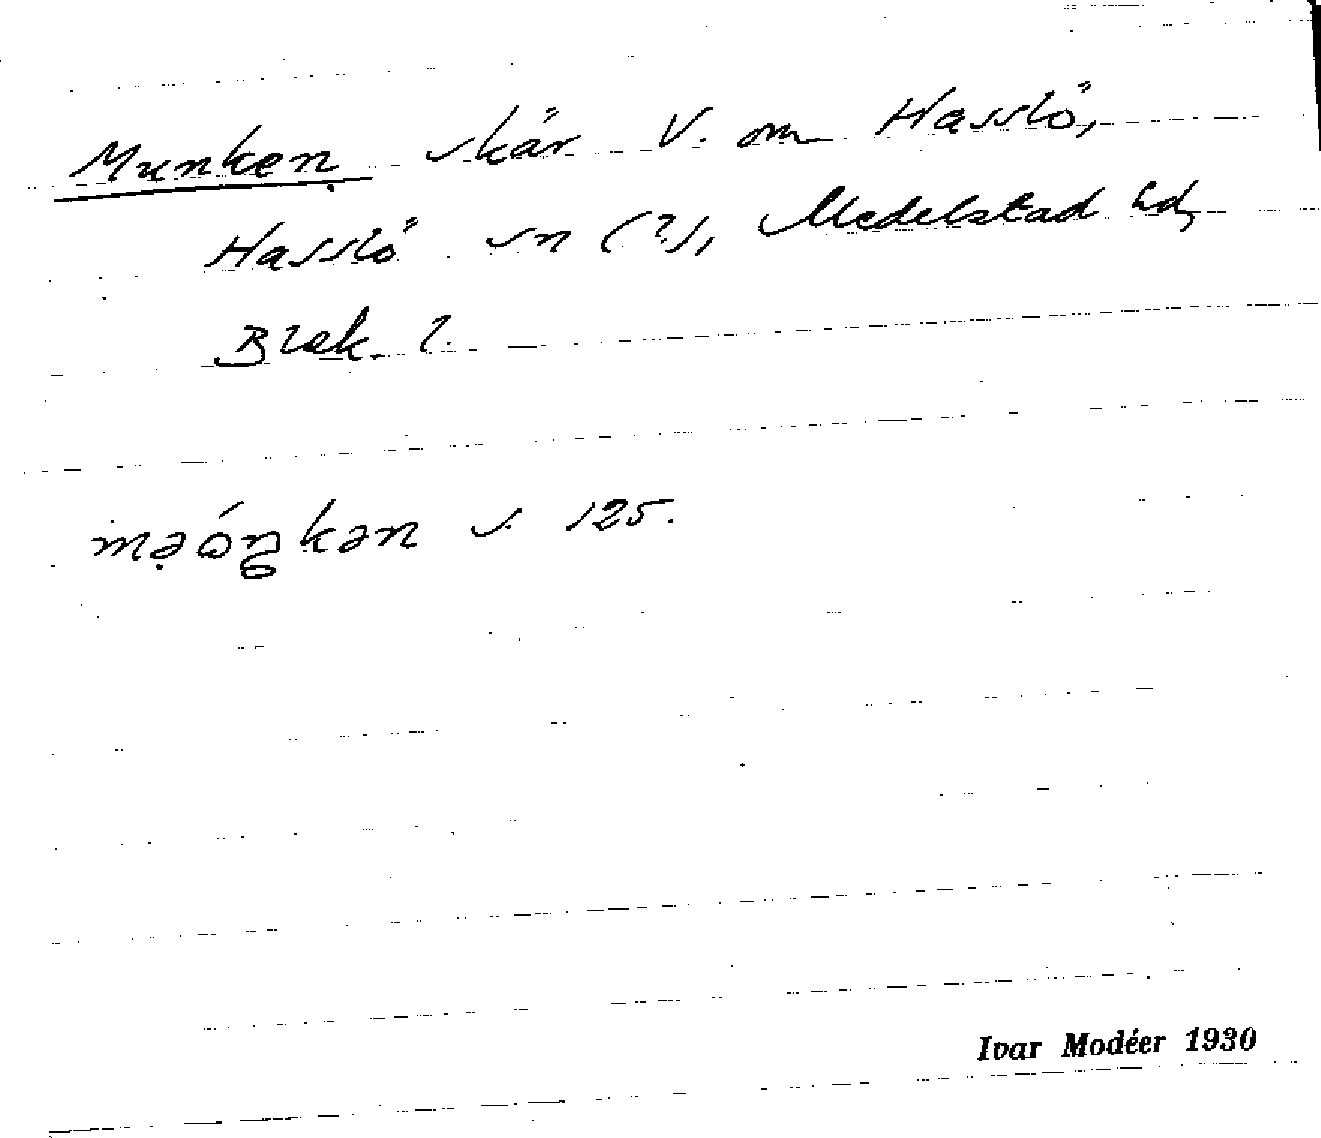 Munken skär V. om Hasslö,
Hasslö sn (?), Medelstad hd,
Blek. l.
mạóŋkən s. 125.
Ivar Modéer 1930